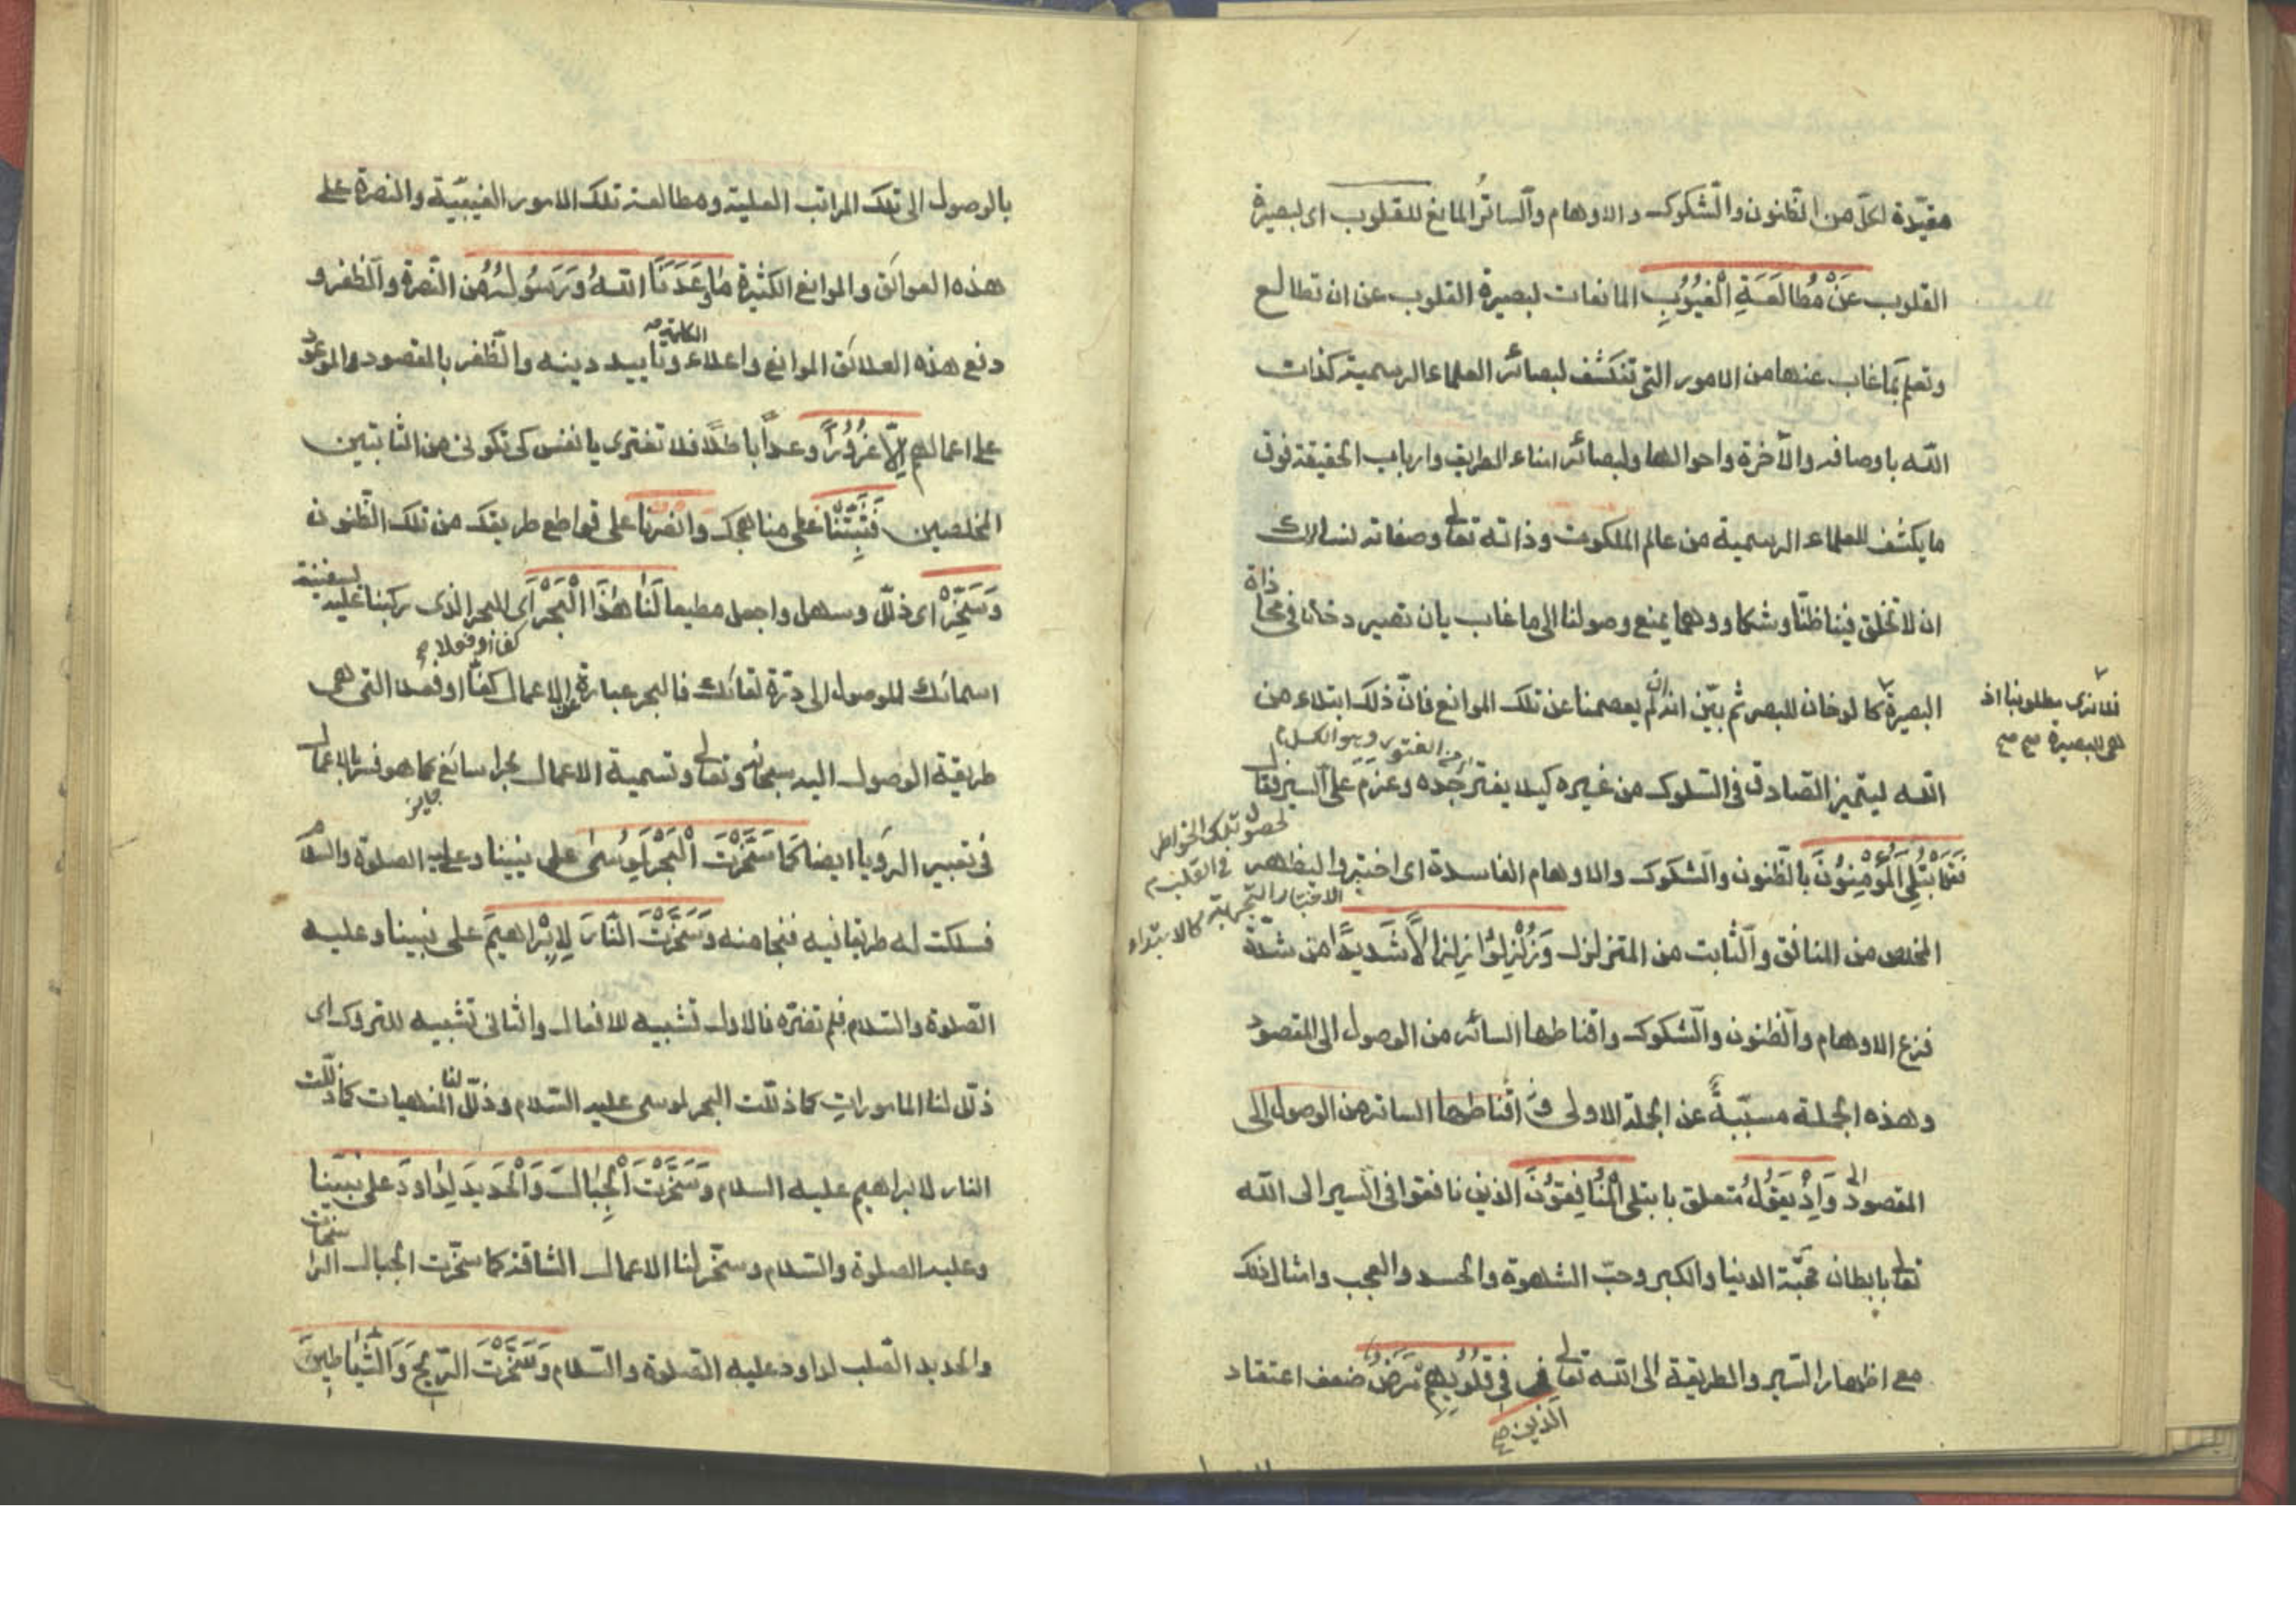 مقيّدة لكلّ من الظّنون والشّكوك والاوهام والسّاتر المانع للقلوب اى لبصيرة
القلوب عَنْ مُطَالَعَةِ الْغُيُوبِ المانعات لبصيرة القلوب عن ان تطالع
وتعلم بما غاب عنها من الامور التى تنكشف لبصائر العلماء الرسمية كذات
اللّه باوصافه والآخرة واحوالها ولبصائر ابناء الطريق وارباب الحقيقة فوق
ما يكشف للعلماء الرسمية من عالم الملكوت وذاته تعالى وصفاته لنسالك
ان لا تخلق فينا ظنّا وشكا ووهما يمنع وصولنا الى ما غاب بان تصير دخانا فى محاذاة
البصيرة كالدخان للبصر ثم بيّن انه ان لم يعصمنا عن تلك الموانع فانّ ذلك ابتلاء من
فلا نرى مطلوبنا اذ
هى للبصيرة صح صح
اللّه ليتميز الصّادق فى السّلوك من غيره كيلا يفتر جده وعزم على السير فقال
من الفتور وهو الكسل
فَقَدِ ابْتُلِيَ الْمُؤْمِنُونَ بالظّنون والشّكوك والاوهام الفاسدة اى اختبروا ليظهر
لحصول تلك الخواطر
فى القلب
الاختبار التجربة كالابتداء
المخلص من المنافق والثّابت من المتزلزل وَزُلْزِلُوا زِلْزَالًا شَدِيدًا من شدّة
فزع الاوهام والظّنون والشّكوك واقناطها السائر من الوصول الى المقصود
وهذه الجملة مسبّبة عن الجملة الاولى اقناطها السائر من الوصول الى
المقصود وَاِذْ يَقُولُ متعلق بابتلى الْمُنَافِقُونَ الذين نافقوا فى السير الى اللّه
تعالى بابطان محبّة الدنيا والكبر وحبّ الشهوة والحسد والعجب وامثال ذلك
مع اظهار السّير والطريقة الى اللّه تعالى فى قُلُوبِهِمْ مَرَضٌ ضعف اعتقاد
الّذين صح
بالوصول الى تلك المراتب العلية ومطالعة تلك الامور الغيبيّة والنصرة على
هذه العوائق والموانع الكثيرة مَا وَعَدَنَا اللّهُ وَرَسُولُهُ من النّصرة والظّفر و
دفع هذه العلائق الموانع واعلاء وتأييد دينه والظّفر بالمقصود والموعود
الكلمة
على اعمالهم اِلَّا غُرُورًا وعدًا باطلًا فلا تغترى يا نفس كى تكونى من الثابتين
المخلصين فَثَبِّتْنَا على مناهجك وانصرنا على قواطع طريقك من تلك الظّنون
وَسَخِّرْ اى ذلّل وسهل واجعل مطيعا لَنَا هٰذَا الْبَحْرَ اى البحر الذى ركبنا عليه بسفينة
اسمائك للوصول الى درّة لقائك فالبحر عبارة عن الاعمال كفّا او فعلا التى هى
كفا او قولا صح
طريقة الوصول اليه سبحانه وتعالى وتسمية الاعمال بحرا سائغ كما هو فسّر بالاعمال
جايز
فى تعبير الرؤيا ايضا كَمَا سَخَّرْتَ الْبَحْرَ لِمُوسٰى على نبينا وعليه الصلوة والسلام
فسلكت له طريقا فيه فنجا منه وَسَخَّرْتَ النَّارَ لِاِبْرَاهِيمَ على نبينا وعليه
الصّلوة والسّلام فلم تضرّه فالاول تشبيه للافعال والثانى تشبيه للتروك اى
ذلّل لنا المامورات كما ذلّلت البحر لموسى عليه السّلام وذلّل لنا المنهيات كما ذلّلت
النار لابراهيم عليه السلام وَسَخَّرْتَ الْجِبَالَ وَالْحَدِيدَ لِدَاوُدَ على نبيّنا
وعليه الصلوة والسّلام وسخّر لنا الاعمال الشاقة كما سخّرت الجبال الراسخات
والحديد الصّلب لداود عليه الصّلوة والسّلام وَسَخَّرْتَ الرِّيحَ وَالشَّيَاطِينَ